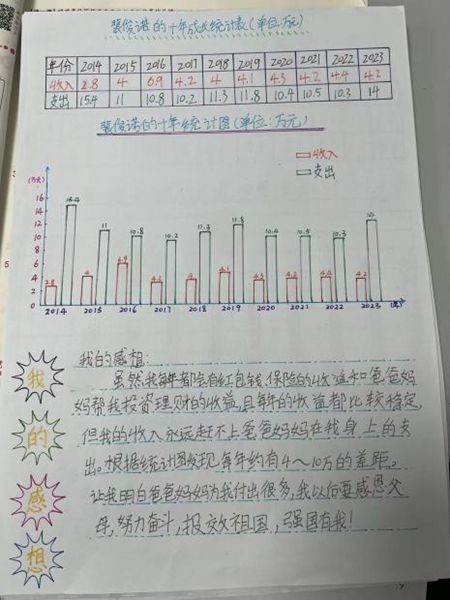 裴俊诺的十年成长统计表(单位:万元)
年份 2014 2015 2016 2017 2018 2019 2020 2021 2022 2023
收入 2.8 4 6.9 4.2 4 4.1 4.3 4.2 4.4 4.2
支出 15.4 11 10.8 10.2 11.3 11.8 10.4 10.5 10.3 14
裴俊诺的十年统计图(单位:万元)
收入
支出
(万元)
16
14
12
10
8
6
4
2
0
2.8 15.4 4 11 6.9 10.8 10.2 4 11.3 4.1 11.8 10.4 4.2 10.5 4.4 10.3 4.2 14
2014 2015 2016 2017 2018 2019 2020 2021 2022 2023
我的感想
我的感想:
虽然我每年都会有红包钱、保险的收益和爸爸妈
妈帮我投资理财的收益,且每年的收益都比较稳定,
但我的收入永远赶不上爸爸妈妈在我身上的支
出。根据统计图发现,每年约有4～10万的差距。
让我明白爸爸妈妈为我付出很多,我以后要感恩父
母,努力奋斗,报效祖国,强国有我!